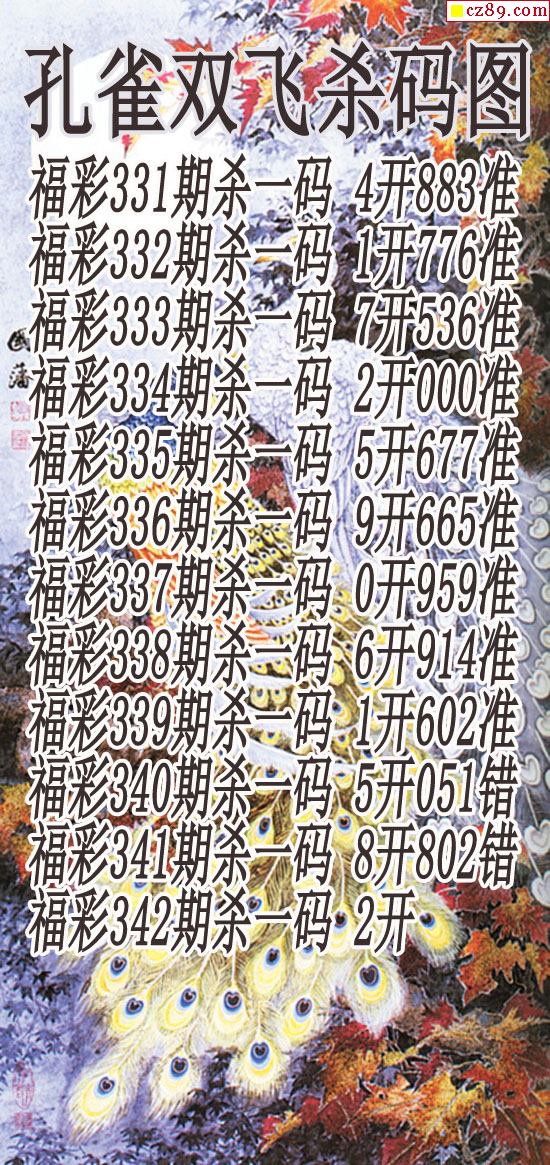 cz89.com
孔雀双飞杀码图
福彩331期杀一码 4开883准
福彩332期杀一码 1开776准
福彩333期杀一码 7开536准
福彩334期杀一码 2开000准
福彩335期杀一码 5开677准
福彩336期杀一码 9开665准
福彩337期杀一码 0开959准
福彩338期杀一码 6开914准
福彩339期杀一码 1开602准
福彩340期杀一码 5开051错
福彩341期杀一码 8开802错
福彩342期杀一码 2开